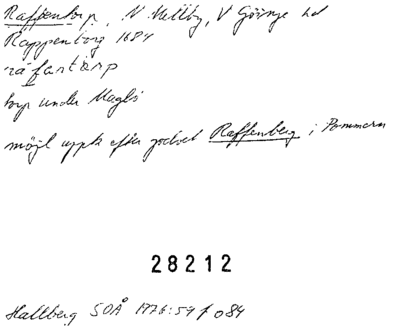 Raffentorp, N Mellby, V Göinge hd
Rappentorp 1684
ráfantàrp
torp under Maglö
möjl uppk efter godset Raffenberg i Pommern
28212
Hallberg SOÅ 1976:59 f o 84